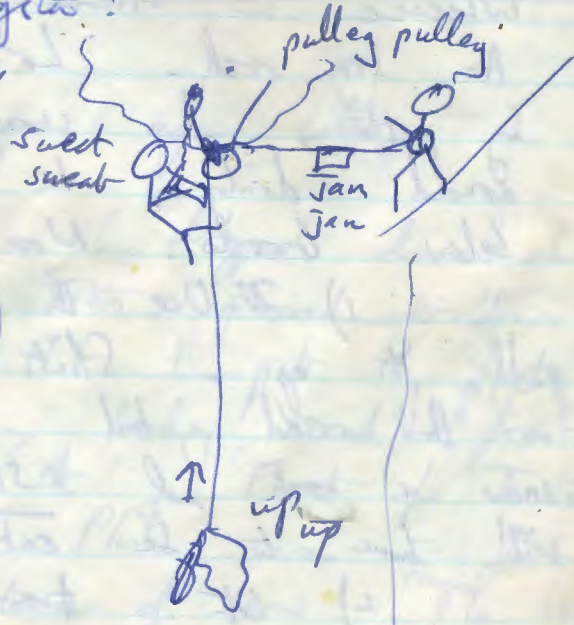 pulley pulley
sweet
sweat
jam
jam
up
up